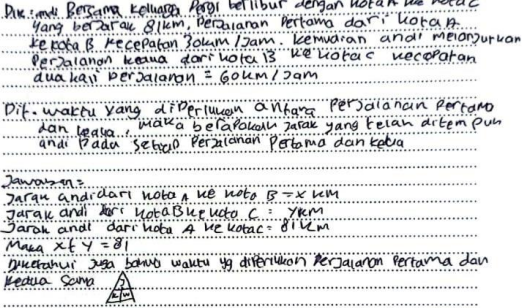 Dik: andi Bersama keluarga Pergi berlibur dengan kota A ke kota C
yang berjarak 81km, Perjalanan Pertama dari kota A
ke kota B kecepatan 30km/Jam. kemudian andi melanjutkan
Perjalanan kedua dari kota B ke kota C kecepatan
dua kali berjalanan = 60km/Jam
Dit. waktu yang diperlukan antara Perjalanan Pertama
dan kedua, maka berapakah jarak yang telah ditempuh
andi Pada setiap Perjalanan Pertama dan kedua
Jawaban =
Jarak andi dari kota A ke kota B = x km
Jarak andi dari kota B ke kota C = y km
Jarak andi dari kota A ke kota C = 81 km
Maka x + y = 81
Diketahui Juga bahwa waktu yg diperlukan Perjalanan Pertama dan
kedua Sama
J
K W